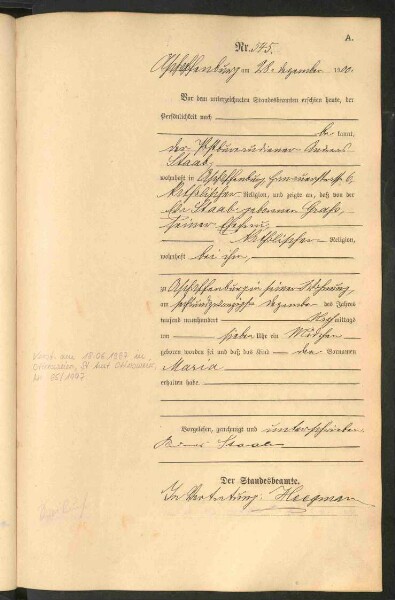 A.
Nr. 545.
Aschaffenburg am 28. Dezember 1900.
Vor dem unterzeichneten Standesbeamten erschien heute, der
Persönlichkeit nach
be kannt,
der Postbureaudiener Andreas
Staab,
wohnhaft in Aschaffenburg 6,
katholischer Religion, und zeigte an, daß von der
Staab, geborenen
seiner Ehefrau,
katholischer Religion,
wohnhaft bei ihm,
zu Aschaffenburg in seiner Wohnung,
am sechsundzwanzigsten Dezember des Jahres
tausend neunhundert Nachmittags
um sieben Uhr ein Mädchen
geboren worden sei und daß das Kind den Vornamen
Maria
erhalten habe.
Verst. am 18.06.1987 in
Nr. 95/1987
Vorgelesen, genehmigt und unterschrieben
Staab
Der Standesbeamte.
In Vertretung: